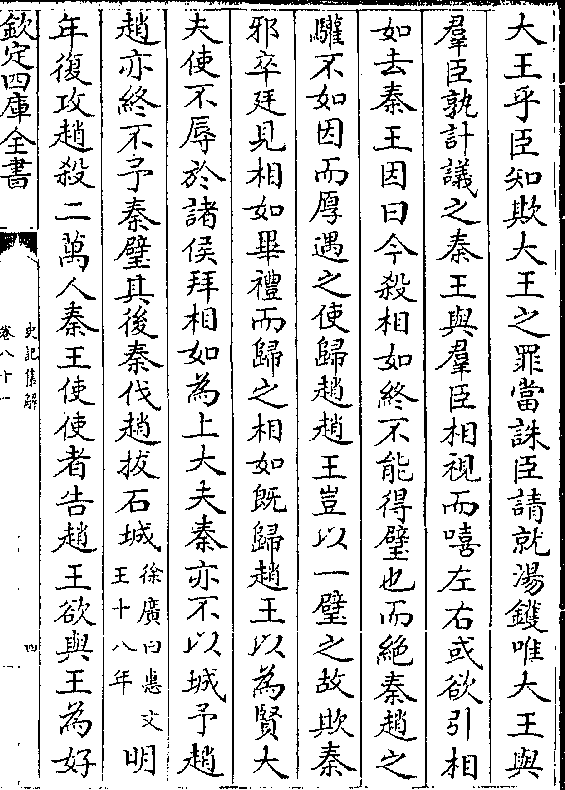 大王乎臣知欺大王之罪當誅臣請就湯鑊唯大王與
羣臣孰計議之秦王與羣臣相視而嘻左右或欲引相
如去秦王因曰今殺相如終不能得璧也而絶秦趙之
驩不如因而厚遇之使歸趙趙王豈以一璧之故欺秦
邪卒廷見相如畢禮而歸之相如既歸趙王以為賢大
夫使不辱於諸侯拜相如為上大夫秦亦不以城予趙
趙亦終不予秦璧其後秦伐趙拔石城徐廣曰惠文王十八年明
年復攻趙殺二萬人秦王使使者告趙王欲與王為好
欽定四庫全書
史記集解
卷八十一
四